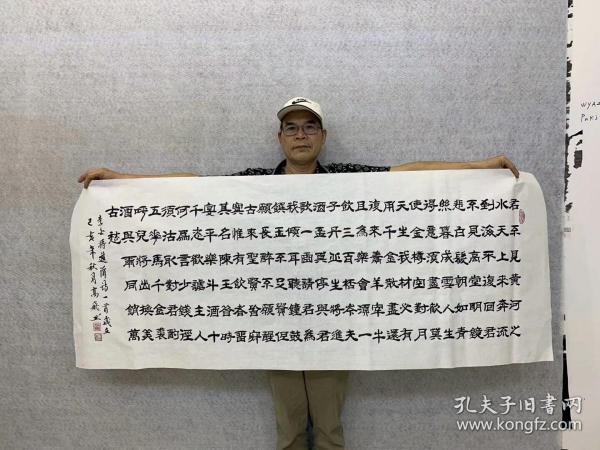 君不見黃河之
水天上來奔流
到海不復回君
不見高堂明鏡
悲白髮朝如青
絲暮成雪人生
得意須盡歡莫
使金樽空對月
天生我材必有
用千金散盡還
復來烹羊宰牛
且為樂會須一
飲三百杯岑夫
子丹丘生將進
酒君莫停與君
歌一曲請君為
我傾耳聽鐘鼓
饌玉不足貴但
願長醉不願醒
古來聖賢皆寂
寞惟有飲者留
其名陳王昔時
宴平樂斗酒十
千恣歡謔主人
何為言少錢徑
須沽取對君酌
五花馬千金裘
呼兒將出換美
酒與爾同銷萬
古愁
李白將進酒詩一首歲在
己亥年秋月高
孔夫子旧书网
www.kongfz.com